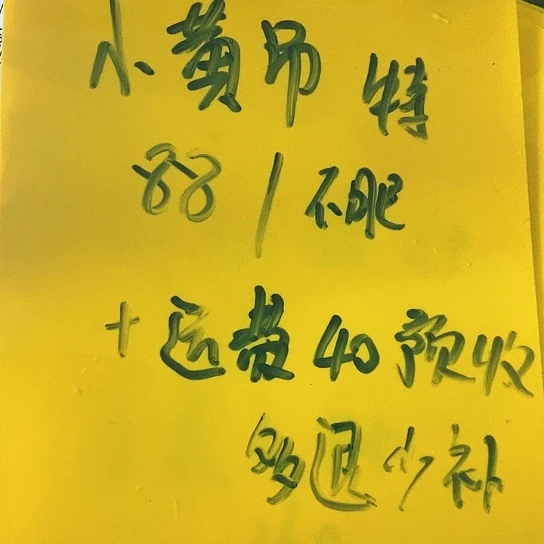 小黄吊 特
88/不肥
+运费40预收
多退少补